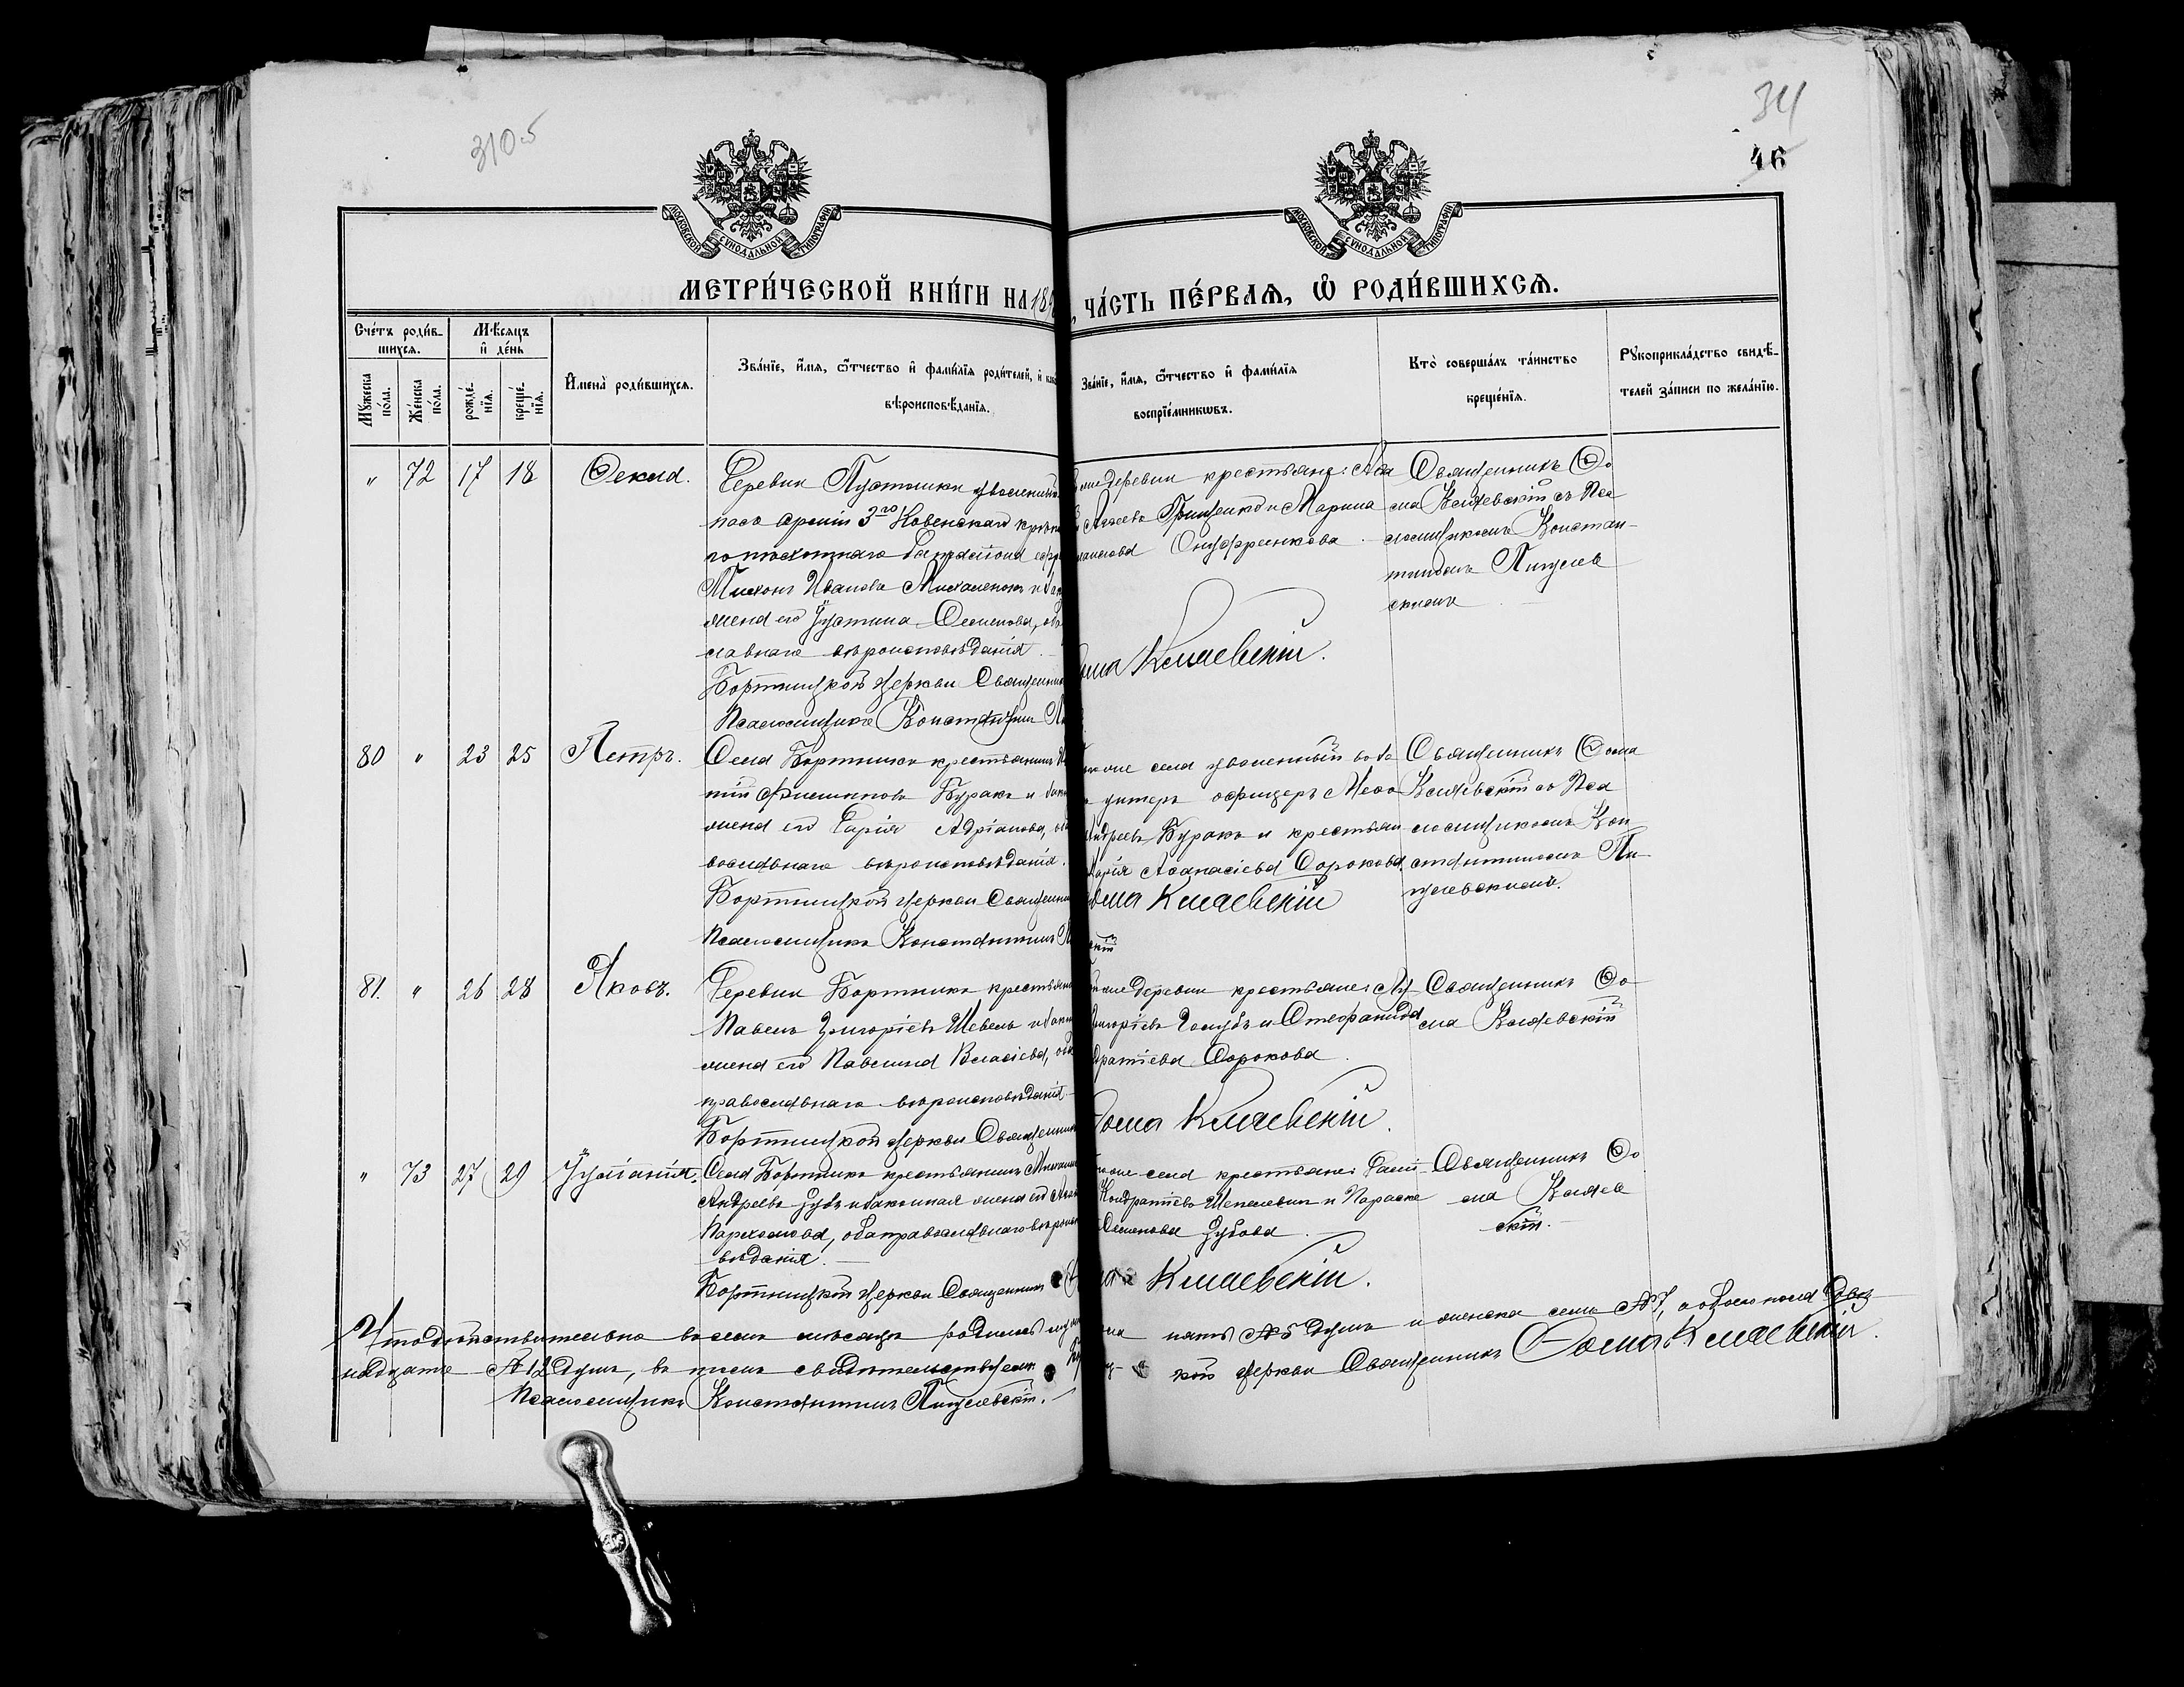 310.5
34
46
МОСКОВСКОЙ СУНОДАЛЬНОЙ ТИПОГРАФІИ
МОСКОВСКОЙ СУНОДАЛЬНОЙ ТИПОГРАФІИ
МЕТРИ́ЧЕСКОЙ КНИ́ГИ НА 189
ЧА́СТЬ ПЕ́РВАЯ, Ѽ РОДИ́ВШИХСѦ.
Сче́тъ роди́в-
шихся.
Мѣсяцъ
и҆ де́нь
Мꙋ́жеска по́ла.
Же́нска по́ла.
рожде́-
нїѧ.
креще́-
нїѧ.
И҆мена̀ роди́вшихся.
Зва́нїе, и҆́мя, ѻ҆́тчество и҆ фамѝлїя роди́телей, и҆ како
вѣроисповѣ́данїя.
Зва́нїе, и҆́мя, ѻ҆́тчество и҆ фамѝлїя
воспрїе́мникѡвъ.
Кто̀ соверша́лъ та́инство
креще́нїя.
Рꙋкоприкла́дство свидѣ́-
телей за́писи по жела́нїю.
" 72 17 18 Ѳекла.
Деревни Пустошки уволенный
пасъ арміи 3го Ковенскаго крѣп
го пѣхотнаго баталіона ефр
Тихонъ Ивановъ Михаленокъ и зак
жена его Іустина Семенова, об
славнаго вѣроисповѣданія.
Бортницкой церкви Священник
Псаломщикъ Константинъ
деревни крестьяне:
Агѣевъ Грищенко и Марина
Онуфренкова.
ома Клаевскій.
Священникъ Ѳо
ма Клаевскій съ Пса
ломщикомъ Констан-
тиномъ Пигулев
скимъ
80 " 23 25 Петръ.
Села Бортники крестьянинъ
Филиповъ Буракъ и зак
жена его Дарія Адріанова, об
вославнаго вѣроисповѣданія.
Бортницкой церкви Священник
Псаломщикъ Константинъ
села уволенный
унтеръ офицеръ
Андреевъ Буракъ и крестьян
Марія Аѳанасіева Сорокова.
ома Клаевскій
скій
Священникъ Ѳома
Клаевскій съ Пса
ломщикомъ Кон-
стантиномъ Пи-
гулевскимъ.
81. " 26 28 Яковъ.
Деревни Бортники крестьян
Павелъ Григоріевъ Шевель и зак
жена его Павлина Власіева, оба
православнаго вѣроисповѣданія
Бортницкой церкви Священник
деревни крестьяне:
Григоріевъ Голубъ и Стефанида
дратіева Сорокова.
Ѳома Клаевскій.
Священникъ Ѳо
ма Клаевскій
" 73 27 29 Іуліанія.
Села Бортники крестьянинъ Михаилъ
Андреевъ Зубъ и законная жена его
Пархомова, оба православнаго вѣроиспо
вѣданія.
Бортницкой церкви Священникъ
села крестьяне:
Кондратіевъ Шепелевичъ и Параске
Семенова Зубова.
Клаевскій.
Священникъ Ѳо
ма Клаев
скій.
Что дѣйствительно въ семъ мѣсяцѣ родилось
пять №5 душъ и женска семь №7, а обоего пола две
надцать №12 душъ, въ томъ свидѣтельствуемъ
кой церкви Священникъ Ѳома Клаевскій.
Псаломщикъ Константинъ Пигулевскій.